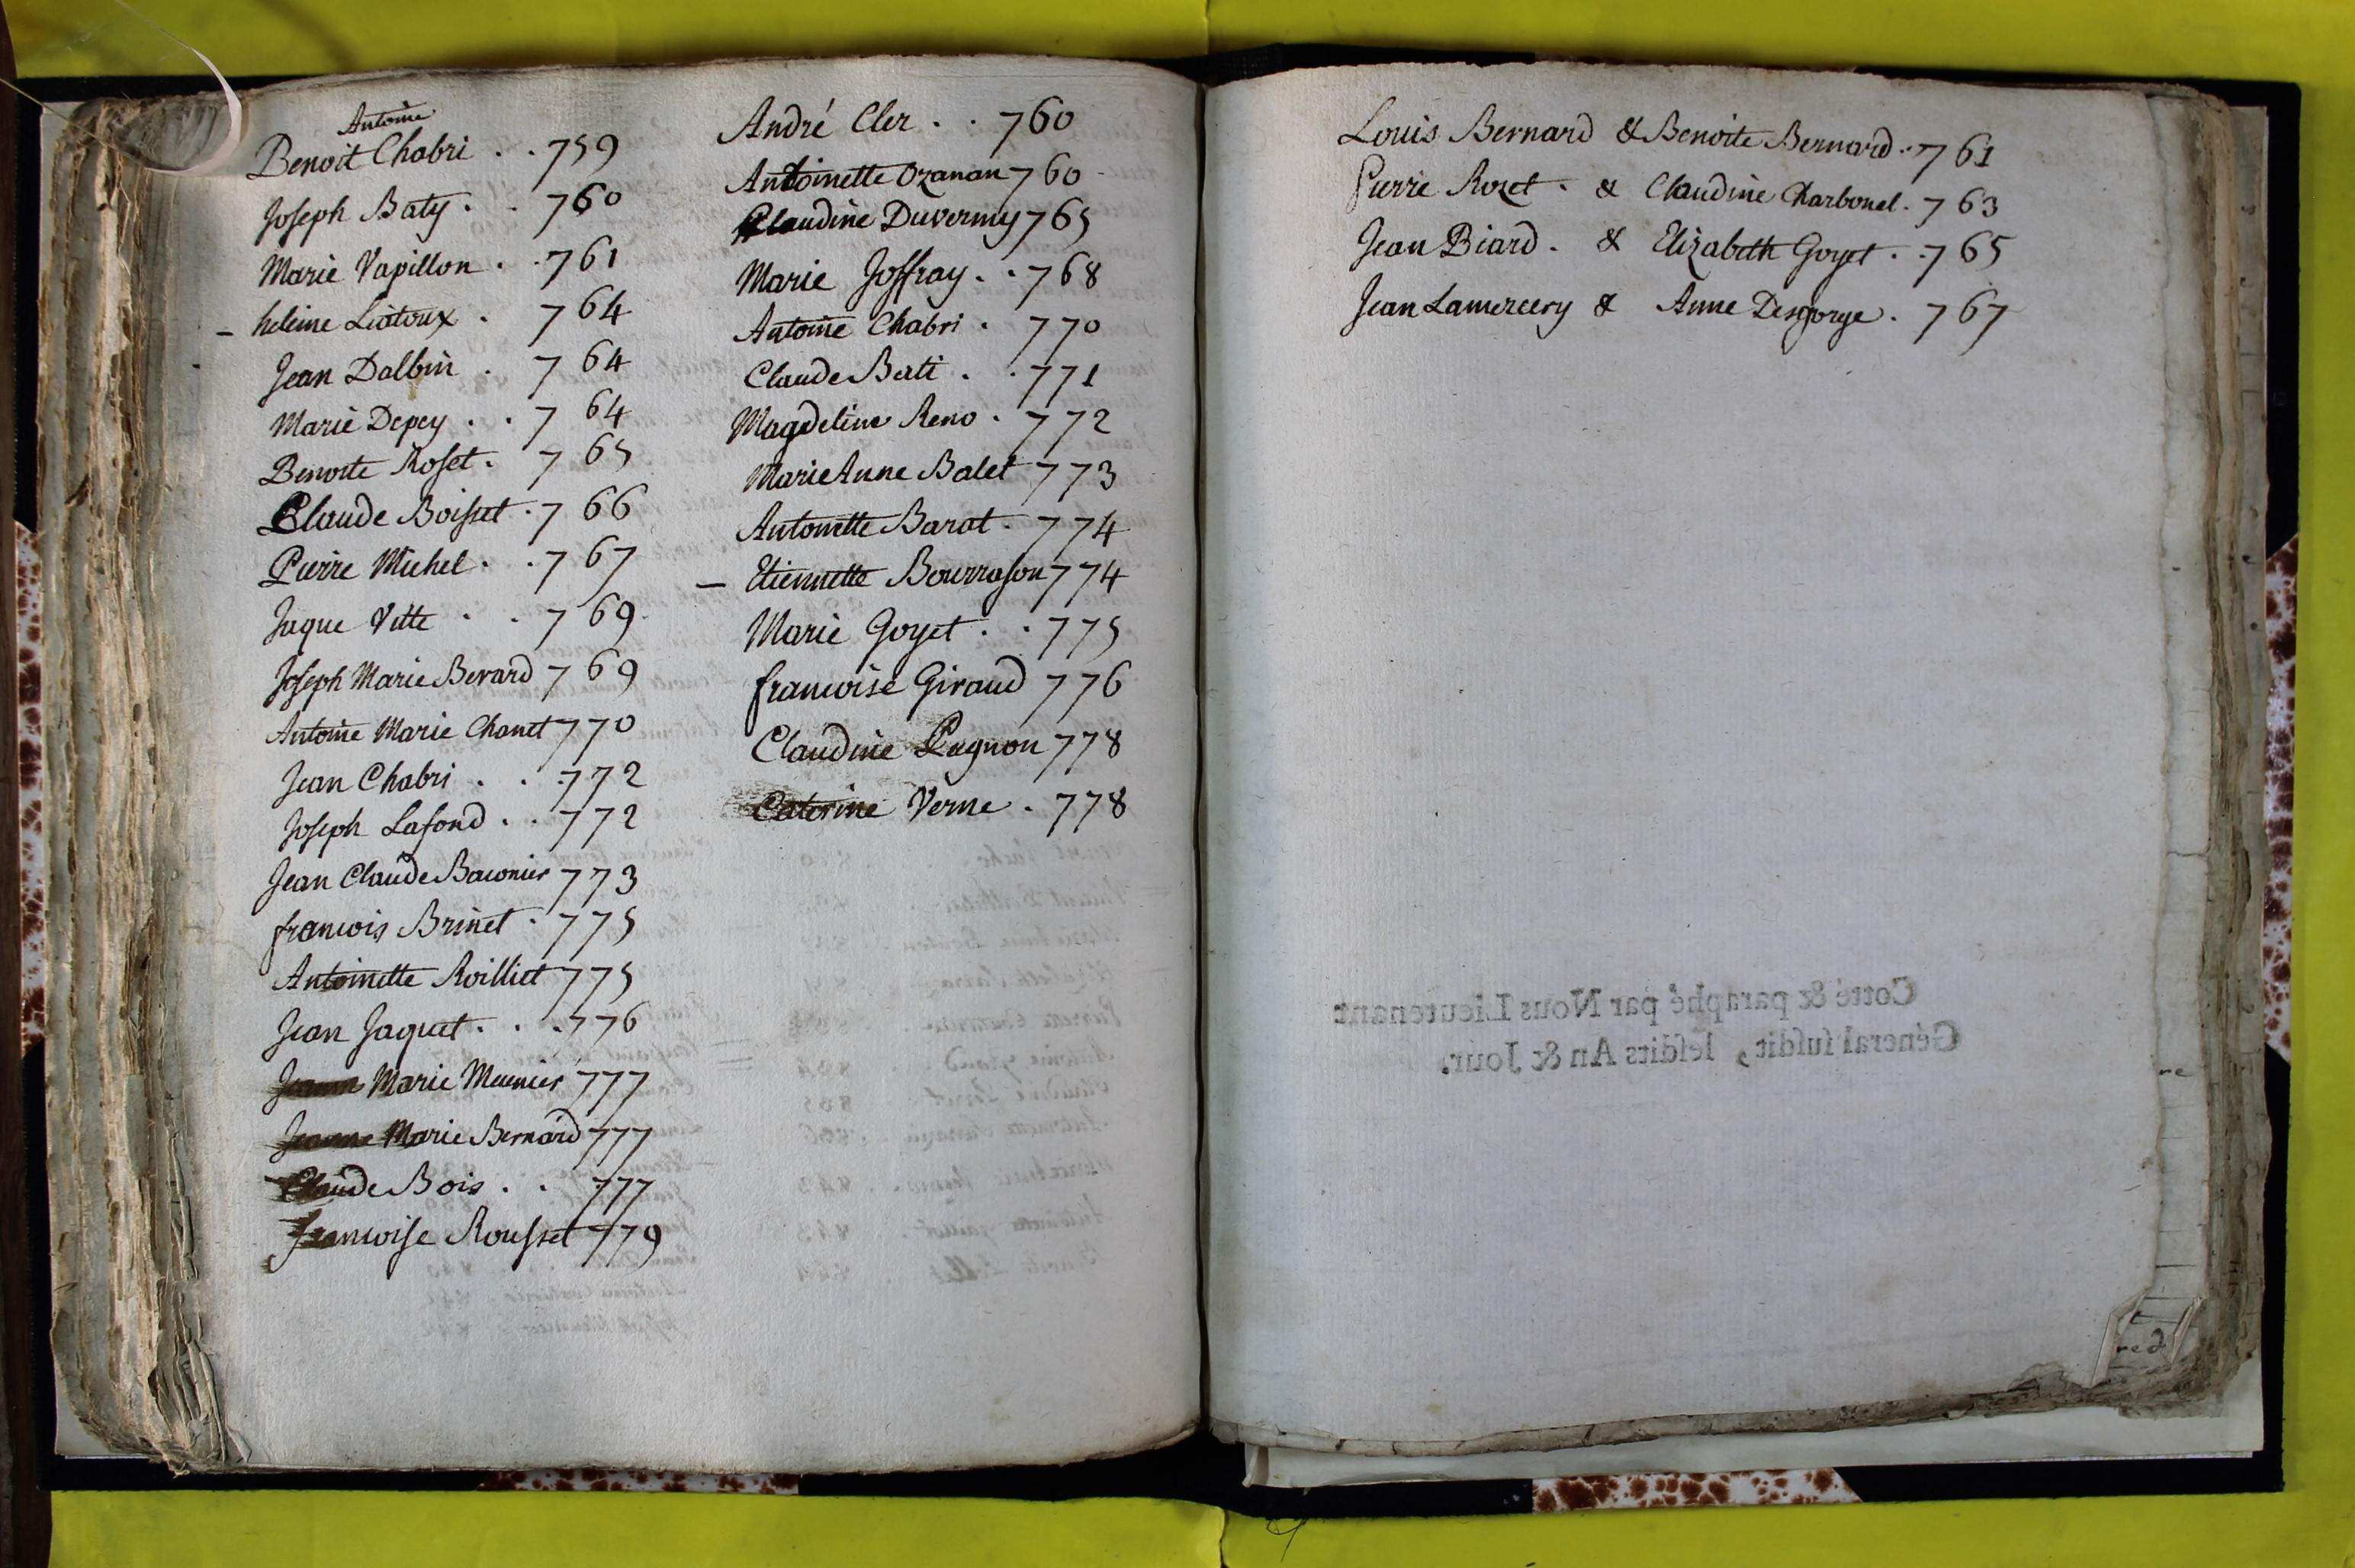 Antoine
Benoit Chabri . . 759
Joseph Baty . . 760
Marie Papillon . . 761
– heleine Liatoux . 764
Jean Dalbin . 764
Marie Depey . . 764
Benoite Roset . 765
Claude Boisset . 766
Pierre Michel . . 767
Jaque Vitte . . 769
Joseph Marie Berard 769
Antoine Marie Chanet 770
Jean Chabri . . 772
Joseph Lafond . . 772
Jean Claude 773
francois Brinet . 775
Antoinette Roilliet 775
Jean Jaquet . . . 776
Jeanne Marie Meunier 777
Jeanne Marie Bernard 777
Claude Bois . . 777
francoise Rousset 779
André Cler . . 760
Antoinette Ozanan 760
Claudine Duvermy 765
Marie Joffray . . 768
Antoine Chabri . 770
Claude Bati . . 771
Magdeleine Reno . 772
Marie Anne Balet 773
Antoinette Barat . 774
– Etiennette Bourrason 774
Marie Goyet . . 775
francoise Giraud 776
Claudine Pagnon 778
Caterine Verne . 778
Louis Bernard & Benoite Bernard . . 761
Pierre Rozet . & Claudine Charbonel . 763
Jean Biard . & Elizabeth Goyet . . 765
Jean Lamercery & Anne Desgorge . 767
Cotté & paraphé par Nous Lieutenant
Géneral susdit, lesdits An & Jour.
red